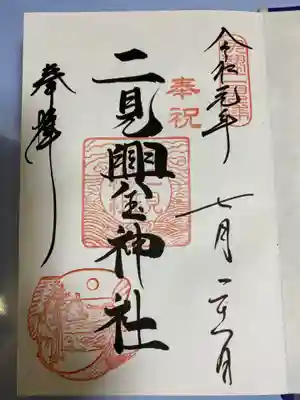 令和元年
七月
奉祝
二見興玉神社
奉拝